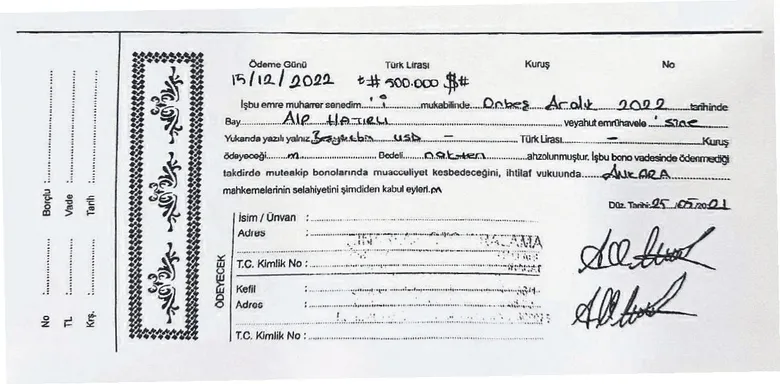 Ödeme Günü Türk Lirası Kuruş No
15/12/2022 ₺# 500.000 $#
İşbu emre muharrer senedim......i......mukabilinde....Onbeş....Aralık....2022....tarihinde
Bay......Alp HATIRLI......veyahut emrühavele....sine
Yukarıda yazılı yalnız Beşyüzbin USD — Türk Lirası — Kuruş
ödeyeceği....m....Bedeli....nakten....ahzolunmuştur. İşbu bono vadesinde ödenmediği
takdirde müteakip bonolarında muacceliyet kesbedeceğini, ihtilaf vukuunda....ANKARA
mahkemelerinin selahiyetini şimdiden kabul eyleri.m
Düz. Tarihi: 25/05/2021
ÖDEYECEK
İsim / Ünvan :
Adres :
T.C. Kimlik No :
Kefil :
Adres :
T.C. Kimlik No :
Borçlu :
Vade :
Tarih :
No :
TL :
Krş. :